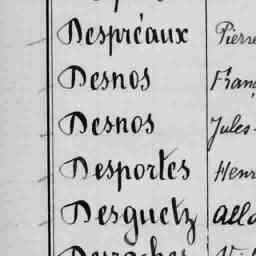 Despréaux Pierre
Desnos
Desnos Jules-
Desportes Henri
Desguetz